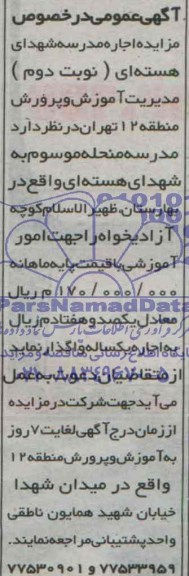 آگهی عمومی در خصوص
مزایده اجاره مدرسه شهدای
هسته‌ای ( نوبت دوم )
مدیریت آموزش وپرورش
منطقه ۱۲ تهران در نظر دارد
مدرسه منحله موسوم به
شهدای هسته‌ای واقع در
بهارستان ظهیرالاسلام کوچه
آزادیخواه را جهت امور
آموزشی با قیمت پایه ماهانه
۱۷۰/۰۰۰/۰۰۰ م ریال
معادل یکصد و هفتاد م ریال
به اجاره یکساله واگذار نماید
از متقاضیان دعوت به عمل
می آید جهت شرکت در مزایده
از زمان درج آگهی لغایت ۷ روز
به آموزش وپرورش منطقه ۱۲
واقع در میدان شهدا
خیابان شهید همایون ناطقی
واحد پشتیبانی مراجعه نمایند.
۷۷۵۳۳۹۵۹ و ۷۷۵۳۰۹۰۱
ParsNamadData